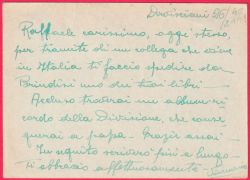 Raffaele carissimo, oggi stesso,
per tramite di un collega che viene
in Italia ti faccio spedire da
Brindisi uno dei tuoi libri.
Accluso troverai un album ri
cordo della Divisione, che conse
gnerai a papà. Grazie assai
In seguito scriverò più a lungo
Ti abbraccio affettuosamente